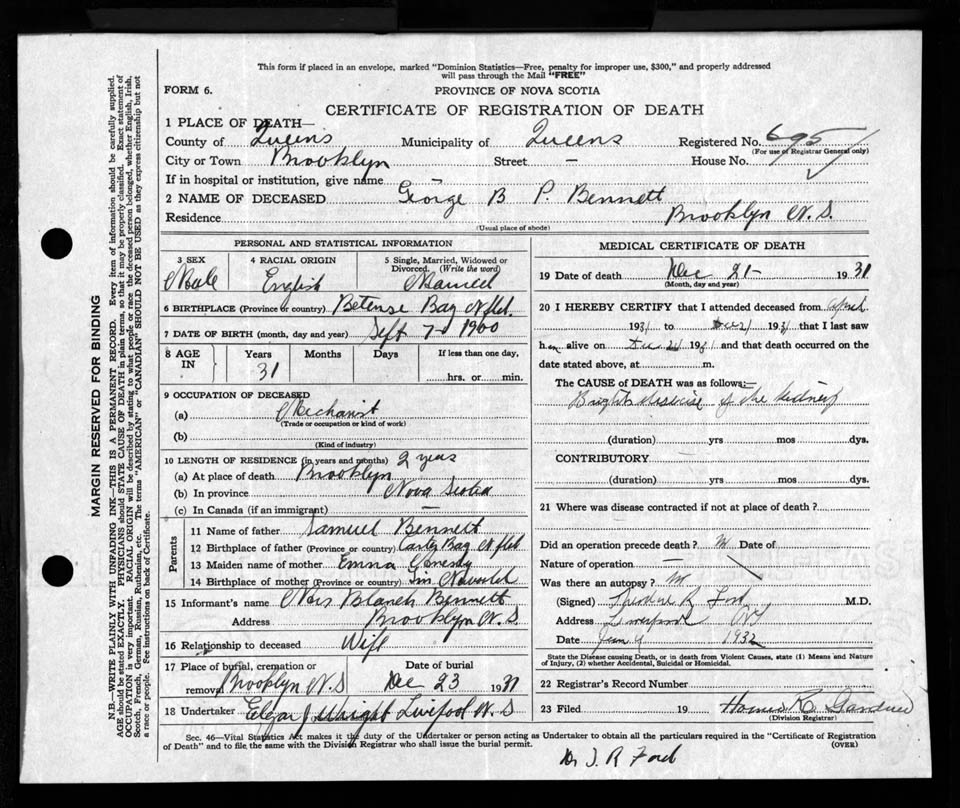 This form if placed in an envelope, marked "Dominion Statistics—Free, penalty for improper use, $300," and properly addressed
will pass through the Mail "FREE"
FORM 6.
PROVINCE OF NOVA SCOTIA
CERTIFICATE OF REGISTRATION OF DEATH
1 PLACE OF DEATH—
County of Queens Municipality of Queens Registered No. 695
(For use of Registrar General only)
City or Town Brooklyn Street — House No.
If in hospital or institution, give name —
2 NAME OF DECEASED George B P. Bennett
Residence Brooklyn N. S.
(Usual place of abode)
PERSONAL AND STATISTICAL INFORMATION
3 SEX 4 RACIAL ORIGIN 5 Single, Married, Widowed or
Divorced. (Write the word)
Male English Married
6 BIRTHPLACE (Province or country) Bay Nfld.
7 DATE OF BIRTH (month, day and year) Sept 7 1900
8 AGE IN Years Months Days If less than one day,
31 hrs. or min.
9 OCCUPATION OF DECEASED
(a) Mechanist
(Trade or occupation or kind of work)
(b)
(Kind of industry)
10 LENGTH OF RESIDENCE (in years and months) 2 years
(a) At place of death Brooklyn
(b) In province Nova Scotia
(c) In Canada (if an immigrant) —
Parents
11 Name of father Samuel Bennett
12 Birthplace of father (Province or country) Bay Nfld
13 Maiden name of mother Emma
14 Birthplace of mother (Province or country)
15 Informant's name Mrs Blanch Bennett
Address Brooklyn N. S
16 Relationship to deceased Wife
17 Place of burial, cremation or Date of burial
removal Brooklyn N. S Dec 23 1931
18 Undertaker Wright Liverpool N. S
MEDICAL CERTIFICATE OF DEATH
19 Date of death Dec 21- 1931
(Month, day and year)
20 I HEREBY CERTIFY that I attended deceased from April
1931 to Dec 21 1931 that I last saw
him alive on Dec 21 1931 and that death occurred on the
date stated above, at m.
The CAUSE of DEATH was as follows:—
Brights disease of the kidney
(duration) yrs mos dys.
CONTRIBUTORY
(duration) yrs mos dys.
21 Where was disease contracted if not at place of death?
Did an operation precede death? Date of
Nature of operation —
Was there an autopsy?
(Signed) R Ford M.D.
Address Liverpool
Date 1932
State the Disease causing Death, or in death from Violent Causes, state (1) Means and Nature
of Injury, (2) whether Accidental, Suicidal or Homicidal.
22 Registrar's Record Number
23 Filed 19
(Division Registrar)
Sec. 46—Vital Statistics Act makes it the duty of the Undertaker or person acting as Undertaker to obtain all the particulars required in the "Certificate of Registration
of Death" and to file the same with the Division Registrar who shall issue the burial permit. (OVER)
Dr J. R Ford
MARGIN RESERVED FOR BINDING
N.B.—WRITE PLAINLY WITH UNFADING INK—THIS IS A PERMANENT RECORD. Every item of information should be carefully supplied.
AGE should be stated EXACTLY. PHYSICIANS should STATE CAUSE OF DEATH in plain terms, so that it may be properly classified. Exact statement of
OCCUPATION is very important. RACIAL ORIGIN will be described by stating to what people or race the deceased person belonged, whether English, Irish,
Scotch, French, German, Russian, Ruthenian, etc. The terms "AMERICAN" or "CANADIAN" SHOULD NOT BE USED as they express citizenship but not
a race or people. See instructions on back of Certificate.